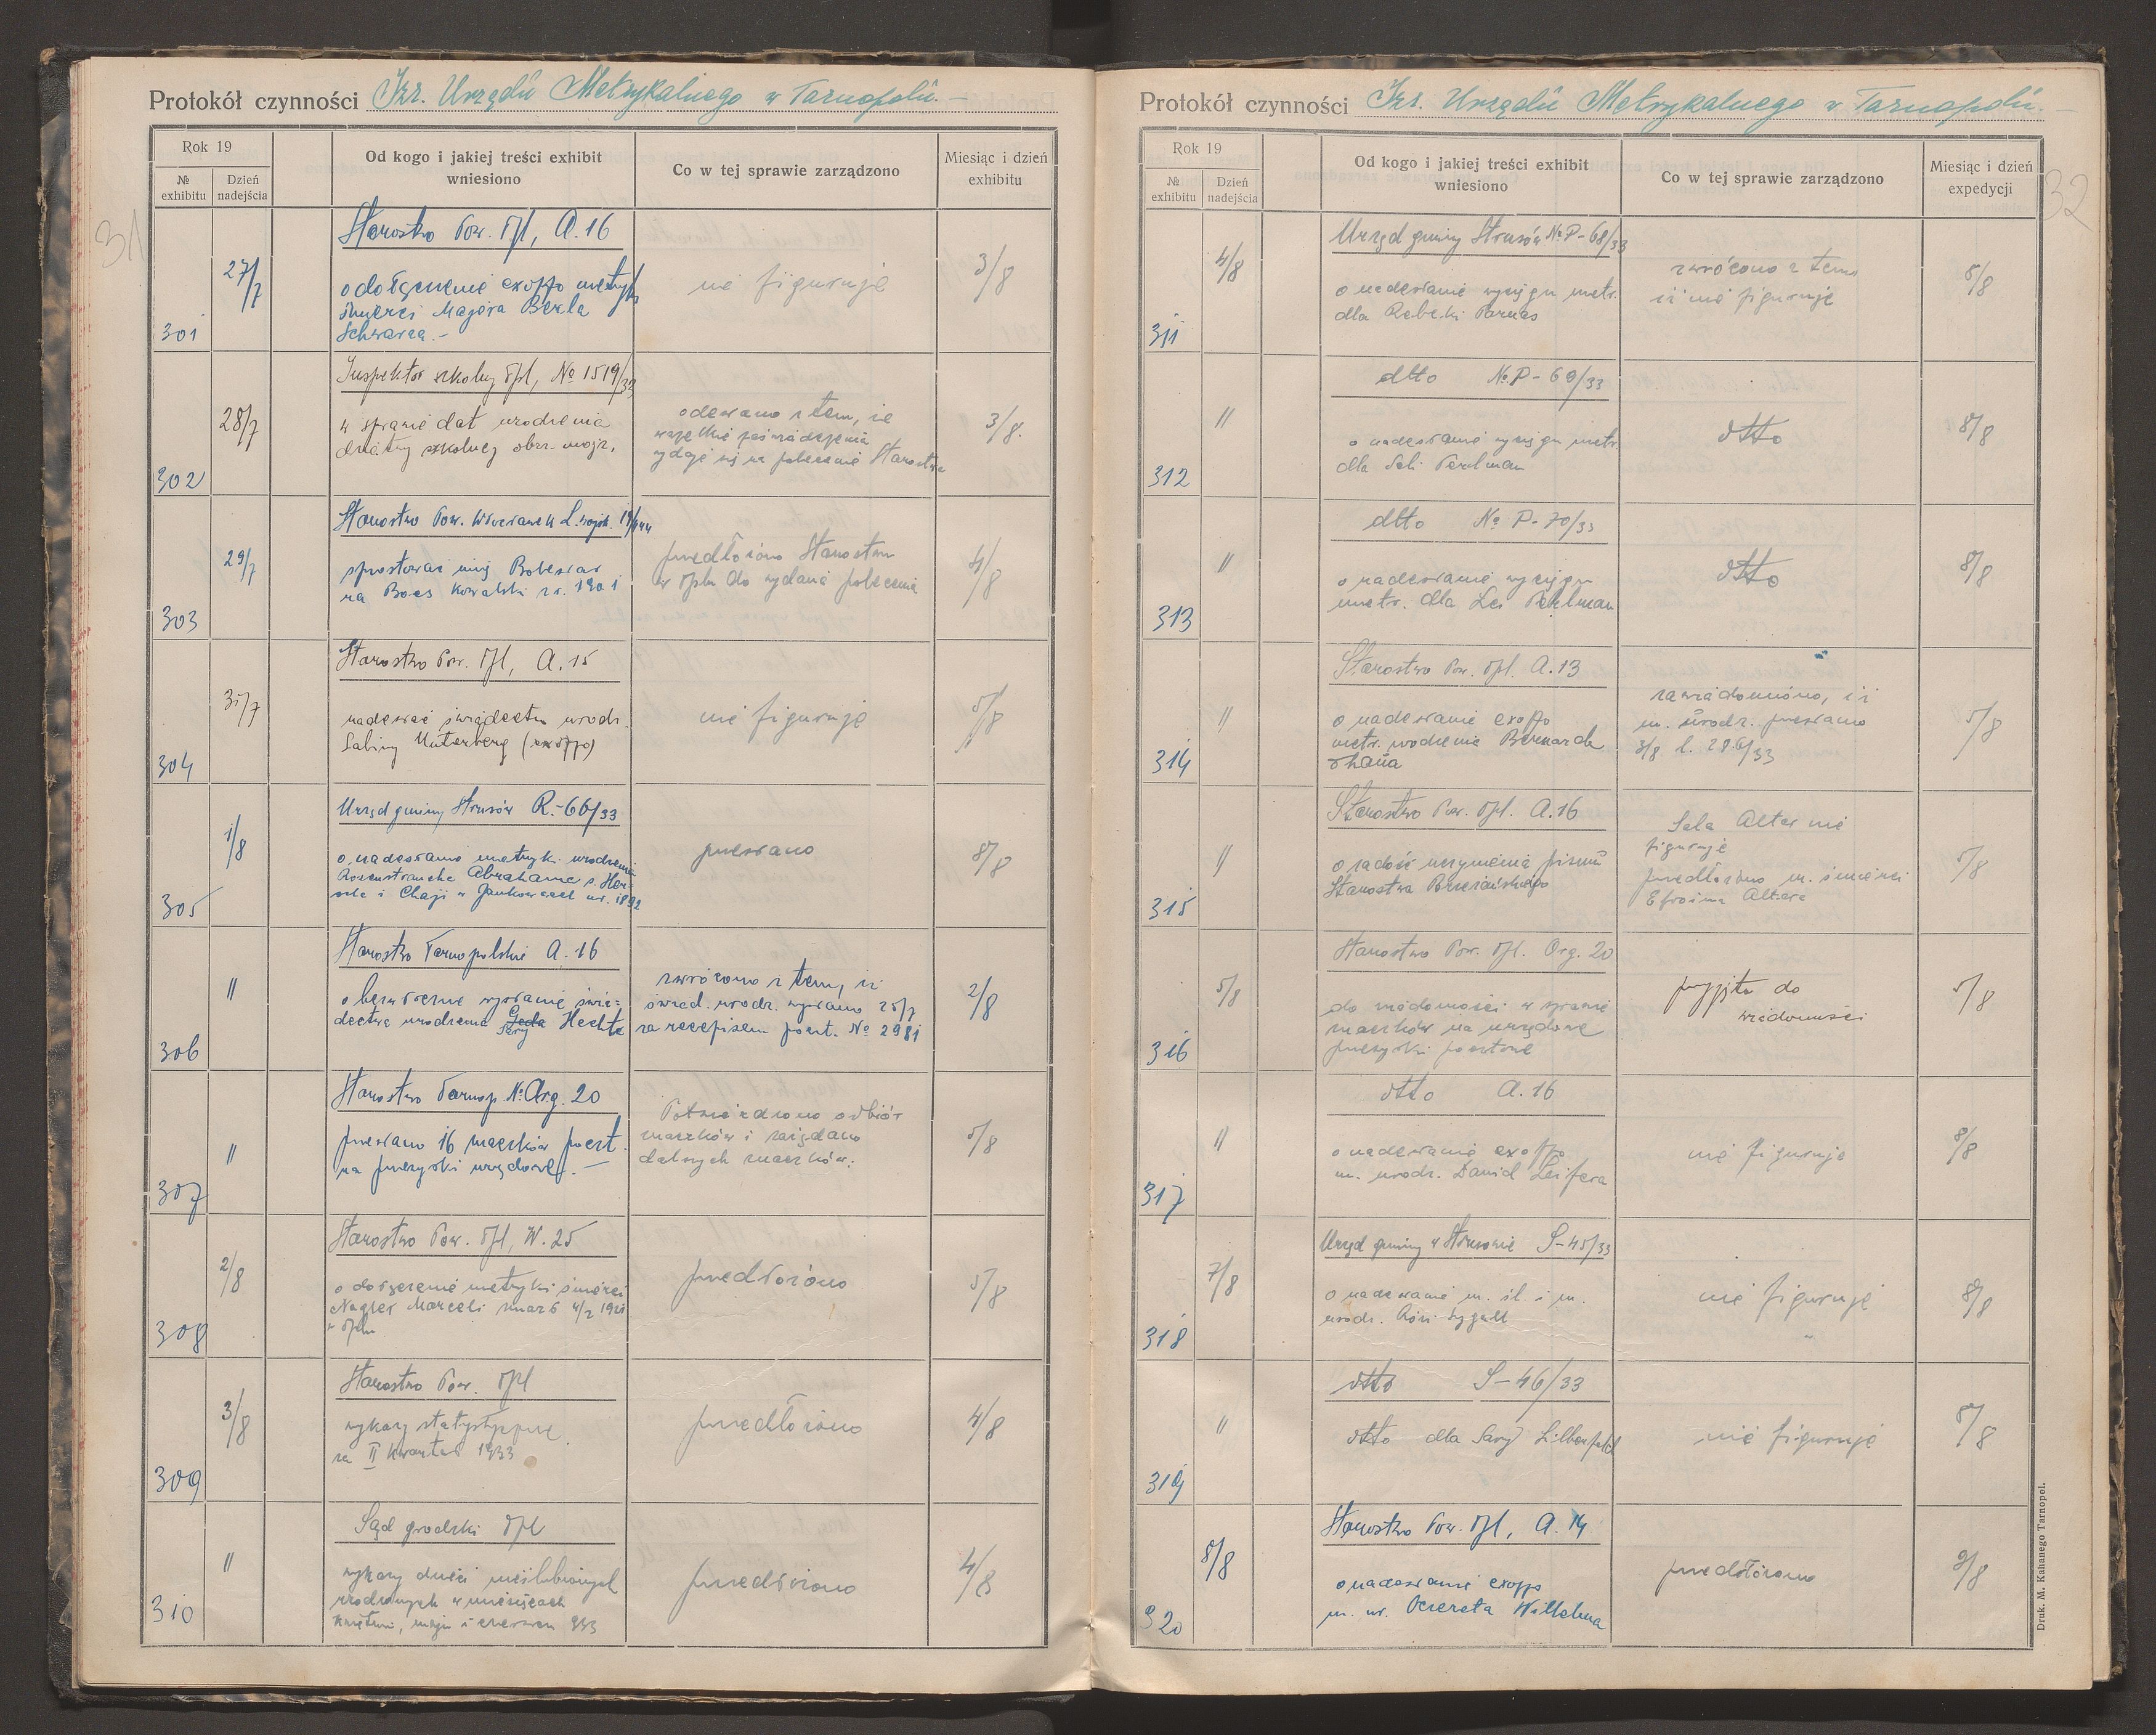 Protokół czynności Izr. Urzędu Metrykalnego w Tarnopolu.
31
Rok 19
№ exhibitu
Dzień nadejścia
Od kogo i jakiej treści exhibit wniesiono
Co w tej sprawie zarządzono
Miesiąc i dzień exhibitu
Starostwo Pow. Tpl, A.16
301
27/7
o dołączenie exoffo metryki
śmierci Majora Berla
Schwarza.-
nie figuruje
3/8
Inspektor szkolny Tpl, № 1519/33
302
28/7
w sprawie dat urodzenia
dziatwy szkolnej obrz. mojż.
odesłano z tem, że
wszelkie poświadczenia
wydaje się na polecenie Starostwa
3/8.
Starostwo Pow. Włocławek L. wojsk.
303
29/7
sprostować imię Bolesław
na Boas Kowalski r. 1901
przedłożono Starostwu
w Tplu do wydania polecenia
4/8
Starostwo Pow. Tpl, A.15
304
31/7
nadesłać świadectwo urodz.
Sabiny Unterberg (exoffo)
nie figuruje
5/8
Urząd gminy Strusów R.-66/33
305
1/8
o nadesłanie metryki urodzenia
Rosenstraucha Abrahama s. Her-
scha i Chaji w Jankowcach ur. 1892
przesłano
8/8
Starostwo Tarnopolskie A.16
306
"
o bezwłoczne wysłanie świa-
dectwa urodzenia Sary Hecht
zwrócono z tem, iż
świad. urodz. wysłano 25/7
za recepisem poczt. № 2981
2/8
Starostwo Tarnop. № Org. 20
307
"
przesłano 16 znaczków poczt.
na przesyłki urzędowe.-
Potwierdzono odbiór
znaczków i zażądano
dalszych znaczków.
5/8
Starostwo Pow. Tpl, W.25
308
2/8
o dołączenie metryki śmierci
Nagler Marceli zmarł 4/2 1921
w Tplu
przedłożono
5/8
Starostwo Pow. Tpl
309
3/8
wykazy statystyczne
za II kwartał 1933
przedłożono
4/8
Sąd grodzki Tpl
310
"
wykazy dzieci nieślubnych
urodzonych w miesiącach
kwietniu, maju i czerwcu 933
przedłożono
4/8
Protokół czynności Izr. Urzędu Metrykalnego w Tarnopolu.
32
Rok 19
№ exhibitu
Dzień nadejścia
Od kogo i jakiej treści exhibit wniesiono
Co w tej sprawie zarządzono
Miesiąc i dzień expedycji
Urząd gminy Strusów № P-68/33
311
4/8
o nadesłanie wyciągu metr.
dla Rebeki Parnas
zwrócono z tem
iż nie figuruje
8/8
dtto № P-69/33
312
"
o nadesłanie wyciągu metr.
dla Perlman
dtto
8/8
dtto № P-70/33
313
"
o nadesłanie wyciągu
metr. dla Lei Perlman
dtto
8/8
Starostwo Pow. Tpl. A.13
314
"
o nadesłanie exoffo
metr. urodzenia Bernarda
zawiadomiono, iż
m. urodz. przesłano
3/8 l. 286/33
5/8
Starostwo Pow. Tpl. A.16
315
"
o zadość uczynienia pismu
Starostwa Brzeżańskiego
Sala Alter nie
figuruje
przedłożono m. śmierci
Efroima Altera
5/8
Starostwo Pow. Tpl. Org. 20
316
5/8
do wiadomości w sprawie
znaczków na urzędowe
przesyłki pocztowe
przyjęto do
wiadomości
5/8
dtto A.16
317
"
o nadesłanie exoffo
m. urodz. Dawid Leifera
nie figuruje
8/8
Urząd gminy w Strusowie S-45/33
318
7/8
o nadesłanie m. śl. i m.
urodz. Rózi
nie figuruje
8/8
dtto S-46/33
319
"
dtto dla Sary Silberfeld
nie figuruje
8/8
Starostwo Pow. Tpl, A.14
320
8/8
o nadesłanie exoffo
m. ur. Wilhelma
przedłożono
9/8
Druk. M. Kahanego Tarnopol.